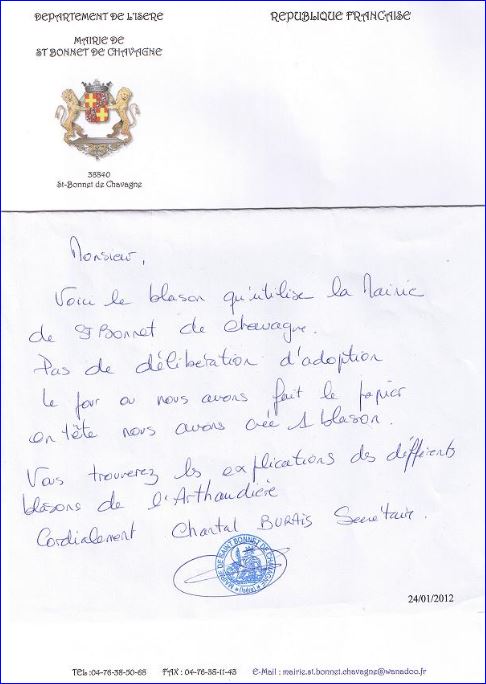 DEPARTEMENT DE L'ISERE
REPUBLIQUE FRANCAISE
MAIRIE DE
ST BONNET DE CHAVAGNE
38840
St-Bonnet de Chavagne
Monsieur,
Voici le blason qu'utilise la Mairie
de St Bonnet de Chavagne.
Pas de délibération d'adoption
le jour ou nous avons fait le papier
en tête nous avons créé 1 blason.
Vous trouverez les explications des différents
blasons de l'Arthaudière
Cordialement Chantal BURAIS Secrétaire.
MAIRIE DE SAINT BONNET DE CHAVAGNE
24/01/2012
TEL : 04-76-38-50-65 FAX : 04-76-38-11-43 E-Mail : mairie.st.bonnet.chavagne@wanadoo.fr